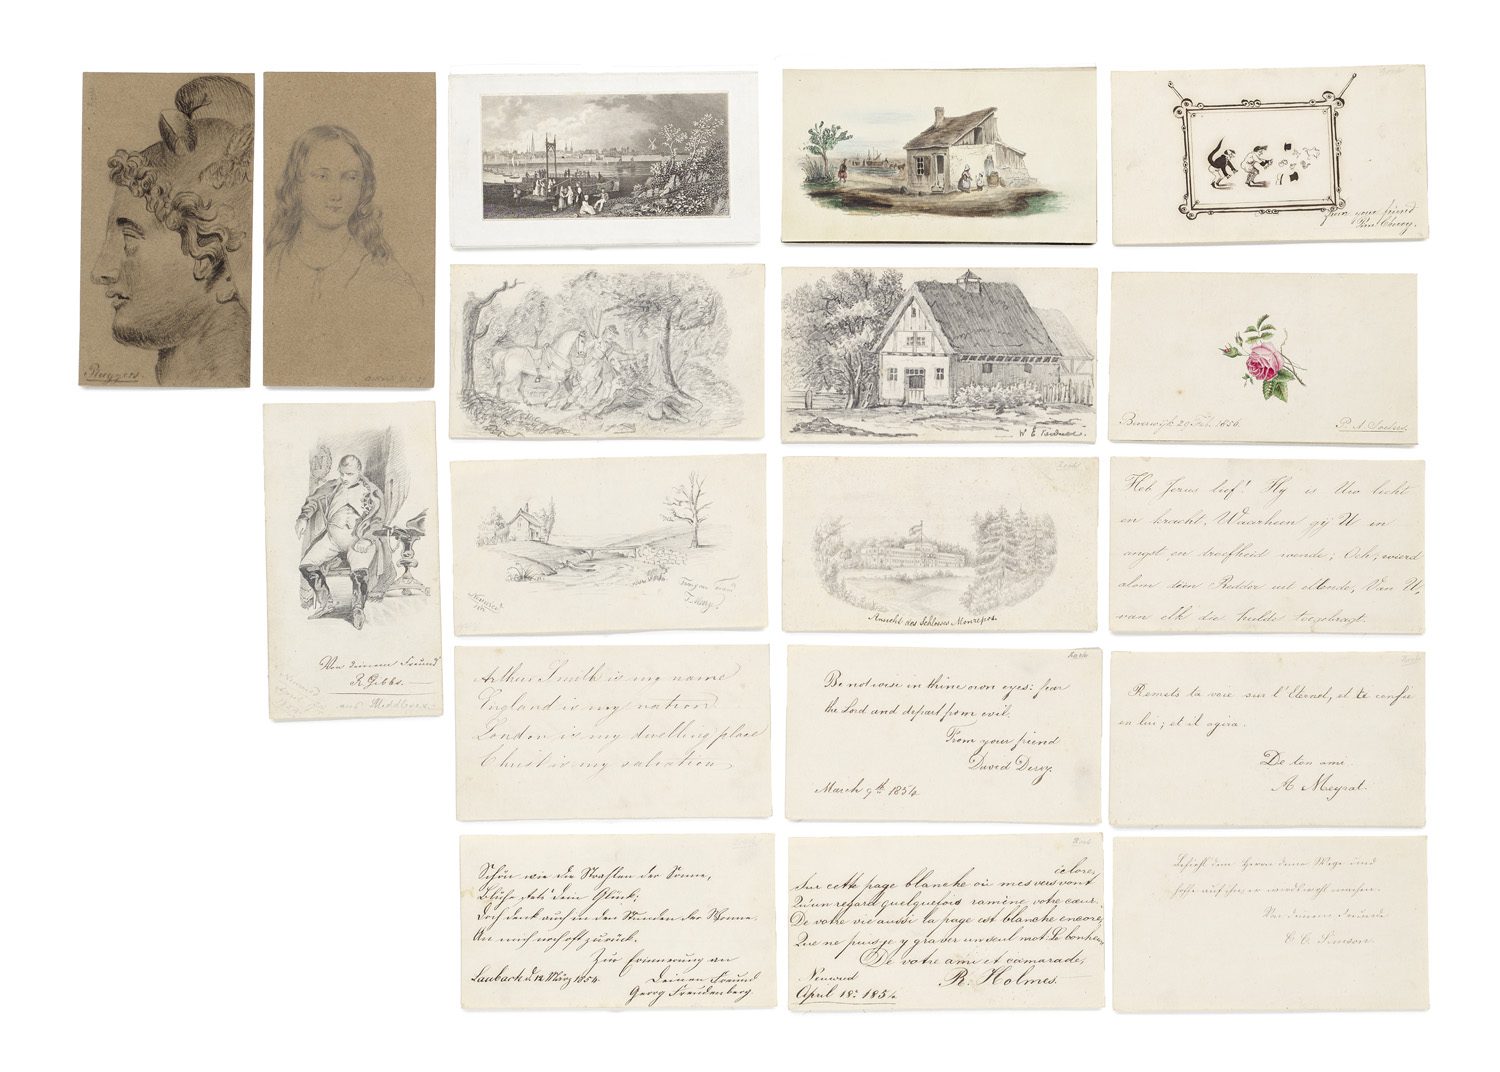 Pluggers.
Von deinem Freund
R. Gibbs.
from your friend
W E
Beverwijk 20 Feb. 1856.
P A
Neuwied
From your friend
Ansicht des Schlosses Monrepos
Heb Jezus lief! Hy is Uw licht
en kracht, Waarheen gij U in
angst en droefheid wende; Och, wierd
alom deen Redder uit ellende, Van U,
van elk die hulde toegebragt.
Arthur Smith is my name
England is my nation
London is my dwelling place
Christ is my salvation
Be not wise in thine own eyes: fear
the Lord and depart from evil.
From your friend
David Derry.
March 9th 1854.
Remets ta voie sur l'Eternel, et te confie
en lui; et il agira.
De ton ami
A Meyrat.
Schön wie die Strahlen der Sonne,
Blühe stets dein Glück;
Doch denk auch in den Stunden der Wonne
An mich noch oft zurück.
Zur Erinnerung an
Laubach d. 12 März 1854.
Deinen Freund
Georg Freudenberg
éclore,
Sur cette page blanche où mes vers vont
Qu'un regard quelquefois ramène votre cœur.
De votre vie aussi la page est blanche encore,
Que ne puis je y graver un seul mot: Le bonheur
De votre ami et camarade,
R. Holmes.
Neuwied
April 18. 1854
Befiehl dem Herrn deine Wege und
hoffe auf ihn, er wird wohl machen.
Von deinem Freunde
C. C. Simson